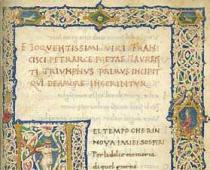 ELOQVENTISSIMI VIRI FRAN
CISCI PETRARCE POETAE LAVREN
TI TRIVMPHVS PRIMVS INCIPIT
QVI DE AMORE INSCRIBITVR
EL TEMPO CHE RIN
NOVA I MIEI SOSPIRI
Per la dolce memoria
di quel giorno